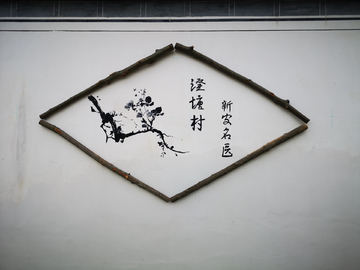 澄塘村
新安名医